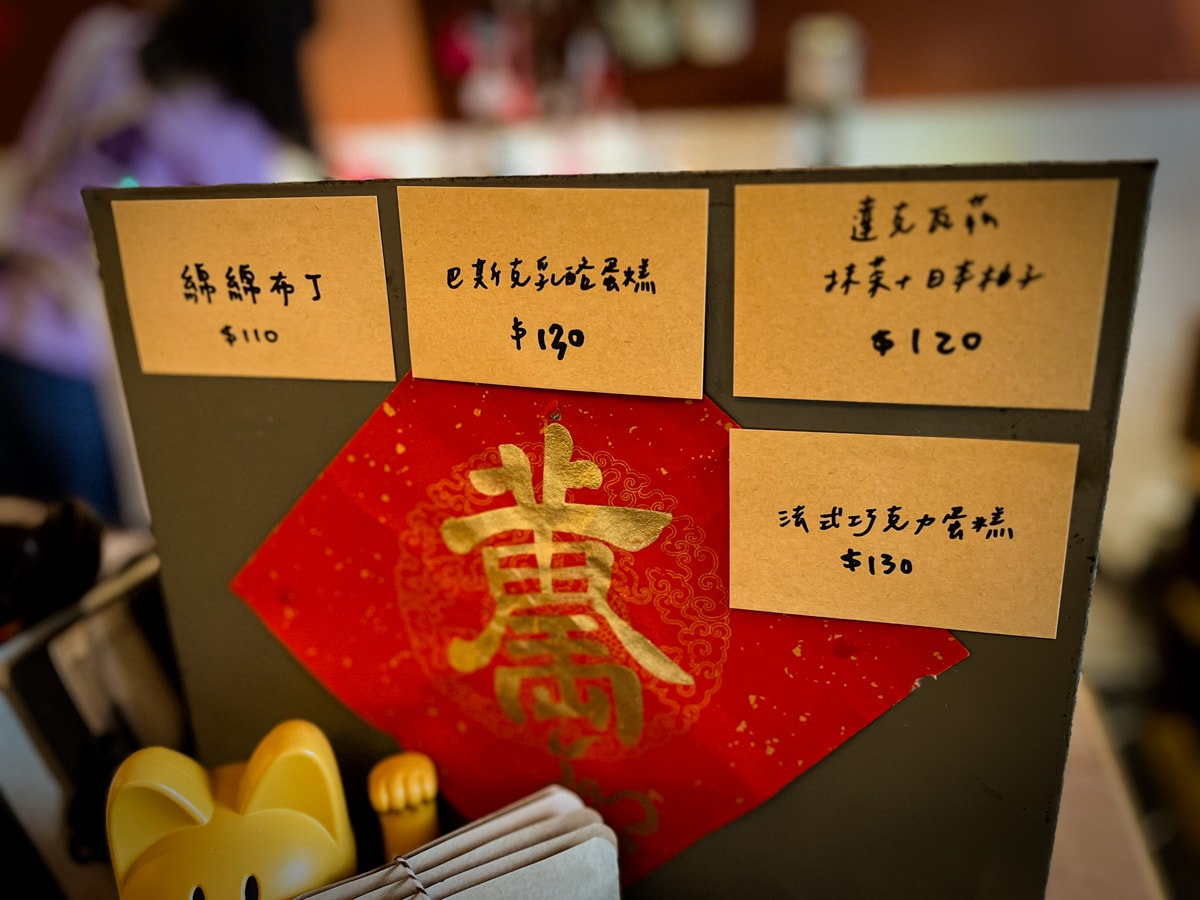 綿綿布丁
$110
巴斯克乳酪蛋糕
$130
達克瓦茲
抹茶+日本柚子
$120
法式巧克力蛋糕
$130